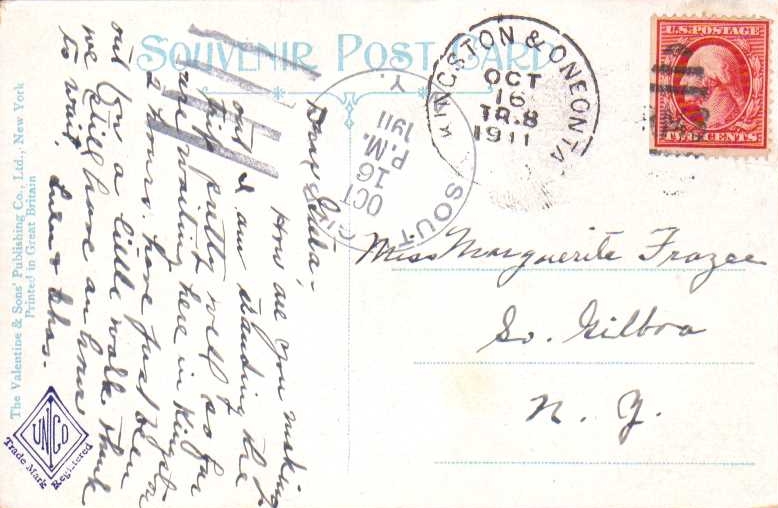 SOUVENIR POST CARD
U.S. POSTAGE
2 CENTS 2
KINGSTON & ONEONTA
OCT
16
TR.8
1911
SOUTH GIL
Y.
OCT
16
P.M.
1911
Miss Marguerite Frazee
So. Gilboa
N. Y.
Dear Sista,
How are you making
out I am standing the
trip pretty well so far
are waiting here in Kingston
2 hours. have just been
out for a little walk think
we still have an hour
to wait. Lulu & Chas.
The Valentine & Sons' Publishing Co., Ltd., New York
Printed in Great Britain
UNCO
Trade Mark Registered